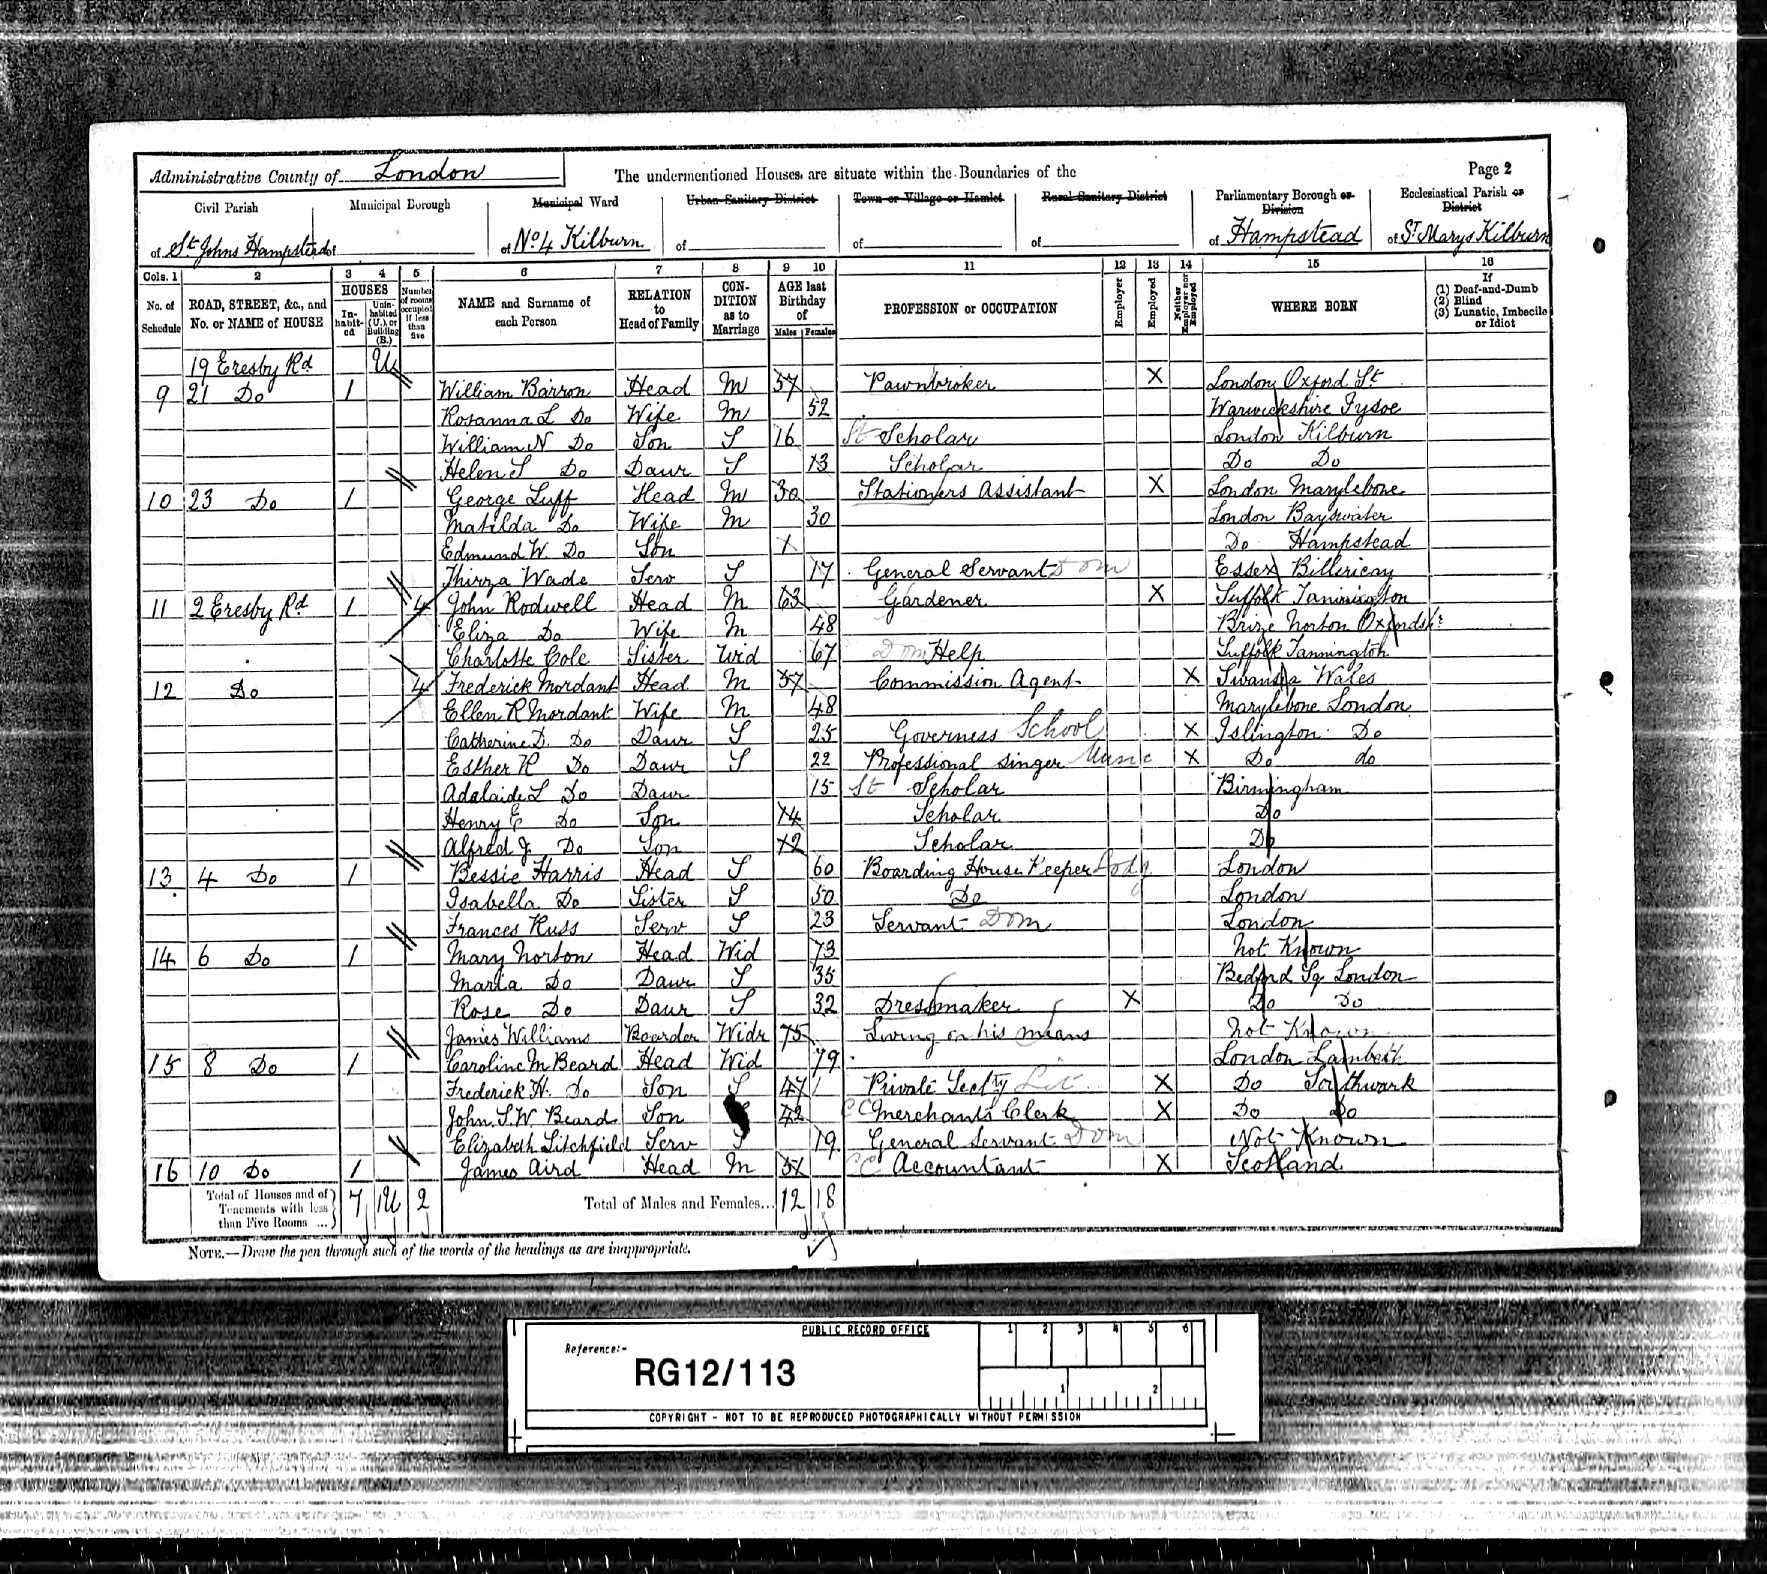 Administrative County of London
The undermentioned Houses are situate within the Boundaries of the
Page 2
Civil Parish of St. Johns Hampstead
Municipal Borough of
Municipal Ward of No 4 Kilburn
Urban Sanitary District of
Town or Village or Hamlet of
Rural Sanitary District of
Parliamentary Borough or Division of Hampstead
Ecclesiastical Parish or District of St. Marys Kilburn
Cols. 1 2 3 4 5 6 7 8 9 10 11 12 13 14 15 16
No. of Schedule
ROAD, STREET, &c., and No. or NAME of HOUSE
HOUSES
Inhabited
Uninhabited (U.), or Building (B.)
Number of rooms occupied if less than five
NAME and Surname of each Person
RELATION to Head of Family
CONDITION as to Marriage
AGE last Birthday of
Males Females
PROFESSION or OCCUPATION
Employer
Employed
Neither Employer nor Employed
WHERE BORN
If (1) Deaf-and-Dumb (2) Blind (3) Lunatic, Imbecile or Idiot
19 Eresby Rd U
9 21 Do 1 William Barron Head M 57 Pawnbroker X London Oxford St
Rosanna L Do Wife M 52 Warwickshire Tysoe
William N Do Son S 16 St Scholar London Kilburn
Helen S Do Daur S 13 Scholar Do Do
10 23 Do 1 George Luff Head M 30 Stationers Assistant X London Marylebone
Matilda Do Wife M 30 London Bayswater
Edmund W. Do Son Do Hampstead
Thirza Wade Serv S 17 General Servant Dom Essex Billericay
11 2 Eresby Rd 1 4 John Rodwell Head M 63 Gardener X Suffolk Tannington
Eliza Do Wife M 48 Brize Norton Oxfordsh
Charlotte Cole Sister Wid 67 Dom Help Suffolk Tannington
12 Do 4 Frederick Mordant Head M 57 Commission Agent X Swansea Wales
Ellen R Mordant Wife M 48 Marylebone London
Catherine D. Do Daur S 25 Governess School X Islington Do
Esther R Do Daur S 22 Professional Singer Music X Do do
Adelaide L Do Daur 15 St Scholar Birmingham
Henry E Do Son 14 Scholar Do
Alfred J. Do Son 12 Scholar Do
13 4 Do 1 Bessie Harris Head S 60 Boarding House Keeper Lodg London
Isabella Do Sister S 50 Do London
Frances Russ Serv S 23 Servant Dom London
14 6 Do 1 Mary Norton Head Wid 73 Not Known
Maria Do Daur S 35 Bedford Sq London
Rose Do Daur S 32 Dressmaker X Do Do
James Williams Boarder Widr 75 Living on his means Not Known
15 8 Do 1 Caroline M Beard Head Wid 79 London Lambeth
Frederick H. Do Son S 47 Private Sectry X Do Southwark
John S. W. Beard Son 42 CC Merchants Clerk X Do Do
Elizabeth Litchfield Serv S 19 General Servant Dom Not Known
16 10 Do 1 James Aird Head M 51 CC Accountant X Scotland
Total of Houses and of Tenements with less than Five Rooms ... 7 1U 2 Total of Males and Females... 12 18
NOTE.—Draw the pen through such of the words of the headings as are inappropriate.
PUBLIC RECORD OFFICE
1 2 3 4 5 6
Reference:-
RG12/113
1 2
COPYRIGHT - NOT TO BE REPRODUCED PHOTOGRAPHICALLY WITHOUT PERMISSION